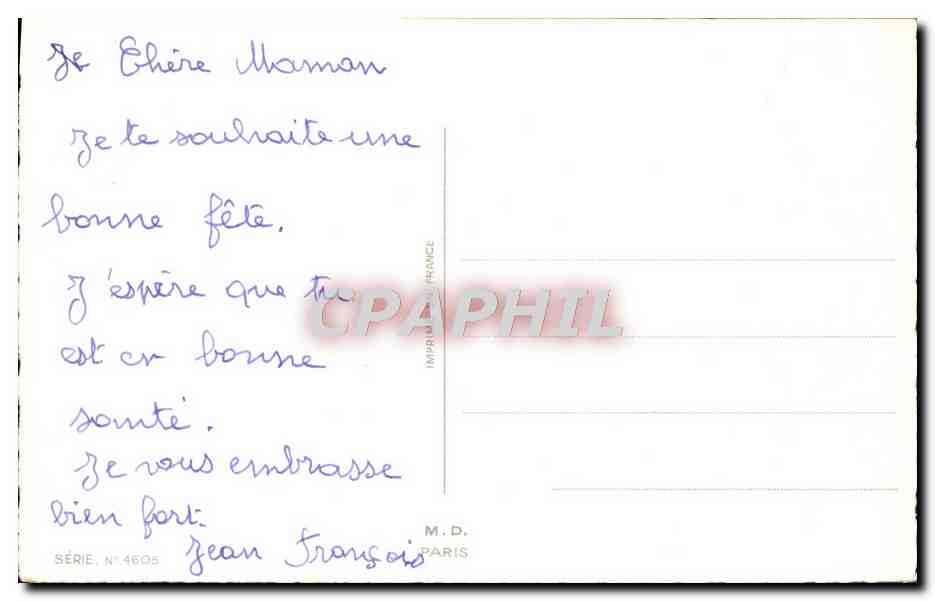 Je Chère Maman
Je te souhaite une
bonne fête.
J'espère que tu
est en bonne
santé.
Je vous embrasse
bien fort.
Jean François
SÉRIE. N° 4605
M. D.
PARIS
IMPRIMÉ EN FRANCE
CPAPHIL